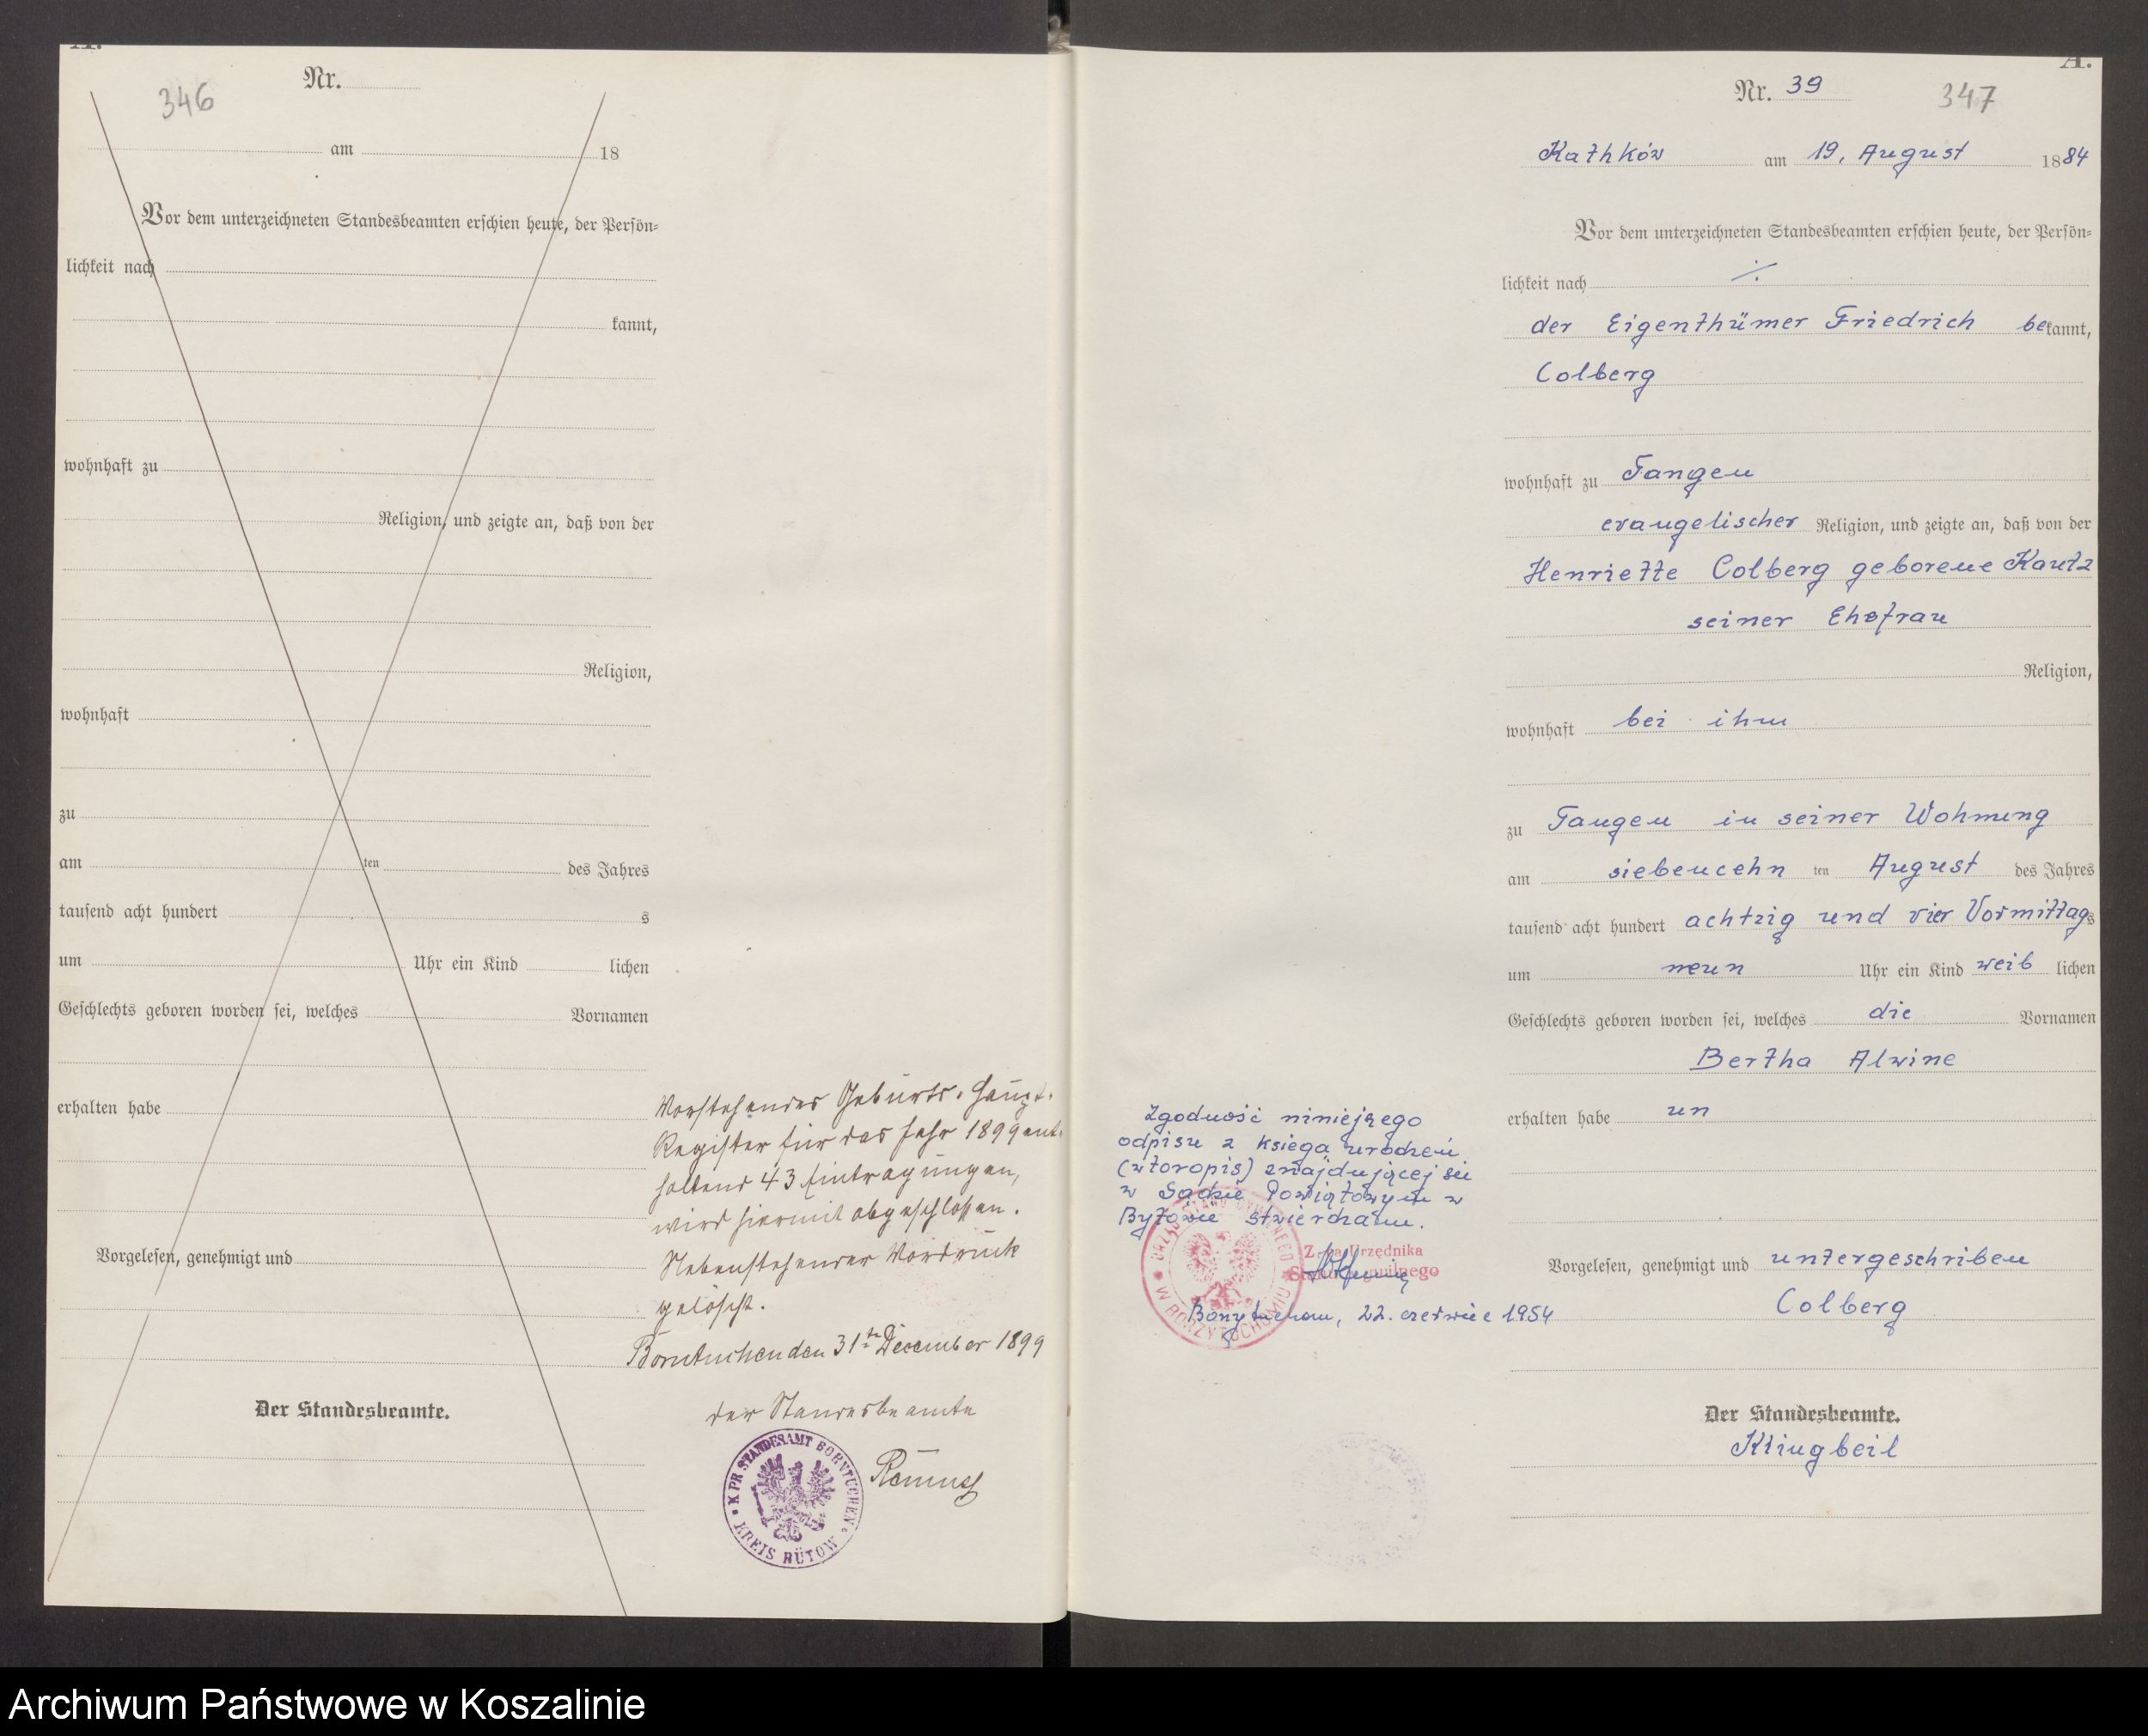 A.
346
Nr.
am 18
Vor dem unterzeichneten Standesbeamten erschien heute, der Persön=
lichkeit nach
kannt,
wohnhaft zu
Religion, und zeigte an, daß von der
Religion,
wohnhaft
zu
am ten des Jahres
tausend acht hundert s
um Uhr ein Kind lichen
Geschlechts geboren worden sei, welches Vornamen
erhalten habe
Vorgelesen, genehmigt und
Der Standesbeamte.
Vorstehendes Geburts-Haupt-
Register für das Jahr 1899 ent-
haltend 43 Eintragungen,
wird hiermit abgeschlossen.
Nebenstehender Vordruck
gelöscht.
Borntuchen den 31ten December 1899
der Standesbeamte
K. PR. STANDESAMT BORNTUCHEN
KREIS BÜTOW
A.
Nr. 39
347
Kathków am 19. August 1884
Vor dem unterzeichneten Standesbeamten erschien heute, der Persön=
lichkeit nach ·/·
der Eigenthümer Friedrich bekannt,
Colberg
wohnhaft zu Tangen
evangelischer Religion, und zeigte an, daß von der
Henriette Colberg geborene Kautz
seiner Ehefrau
Religion,
wohnhaft bei ihm
zu Tangen in seiner Wohnung
am siebencehn ten August des Jahres
tausend acht hundert achtzig und vier Vormittags
um neun Uhr ein Kind weib lichen
Geschlechts geboren worden sei, welches die Vornamen
Bertha Alwine
erhalten habe un
Vorgelesen, genehmigt und untergeschriben
Colberg
Der Standesbeamte.
Klingbeil
Zgodność niniejszego
odpisu z księgą urodzeń
(wtoropis) znajdującej się
w Sądzie Powiatowym w
Bytowie stwierdzam.
URZĄD STANU CYWILNEGO
W BORZYTUCHOMIU
Z-ca Urzędnika
Stanu Cywilnego
Borzytuchom, 22. czerwiec 1954
Archiwum Państwowe w Koszalinie